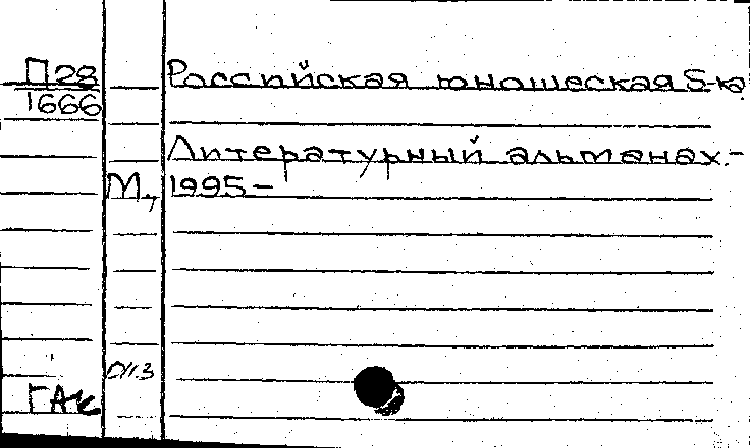 П28 Российская юношеская б-ка
1666
Литературный альманах.-
М., 1995-
ГАК